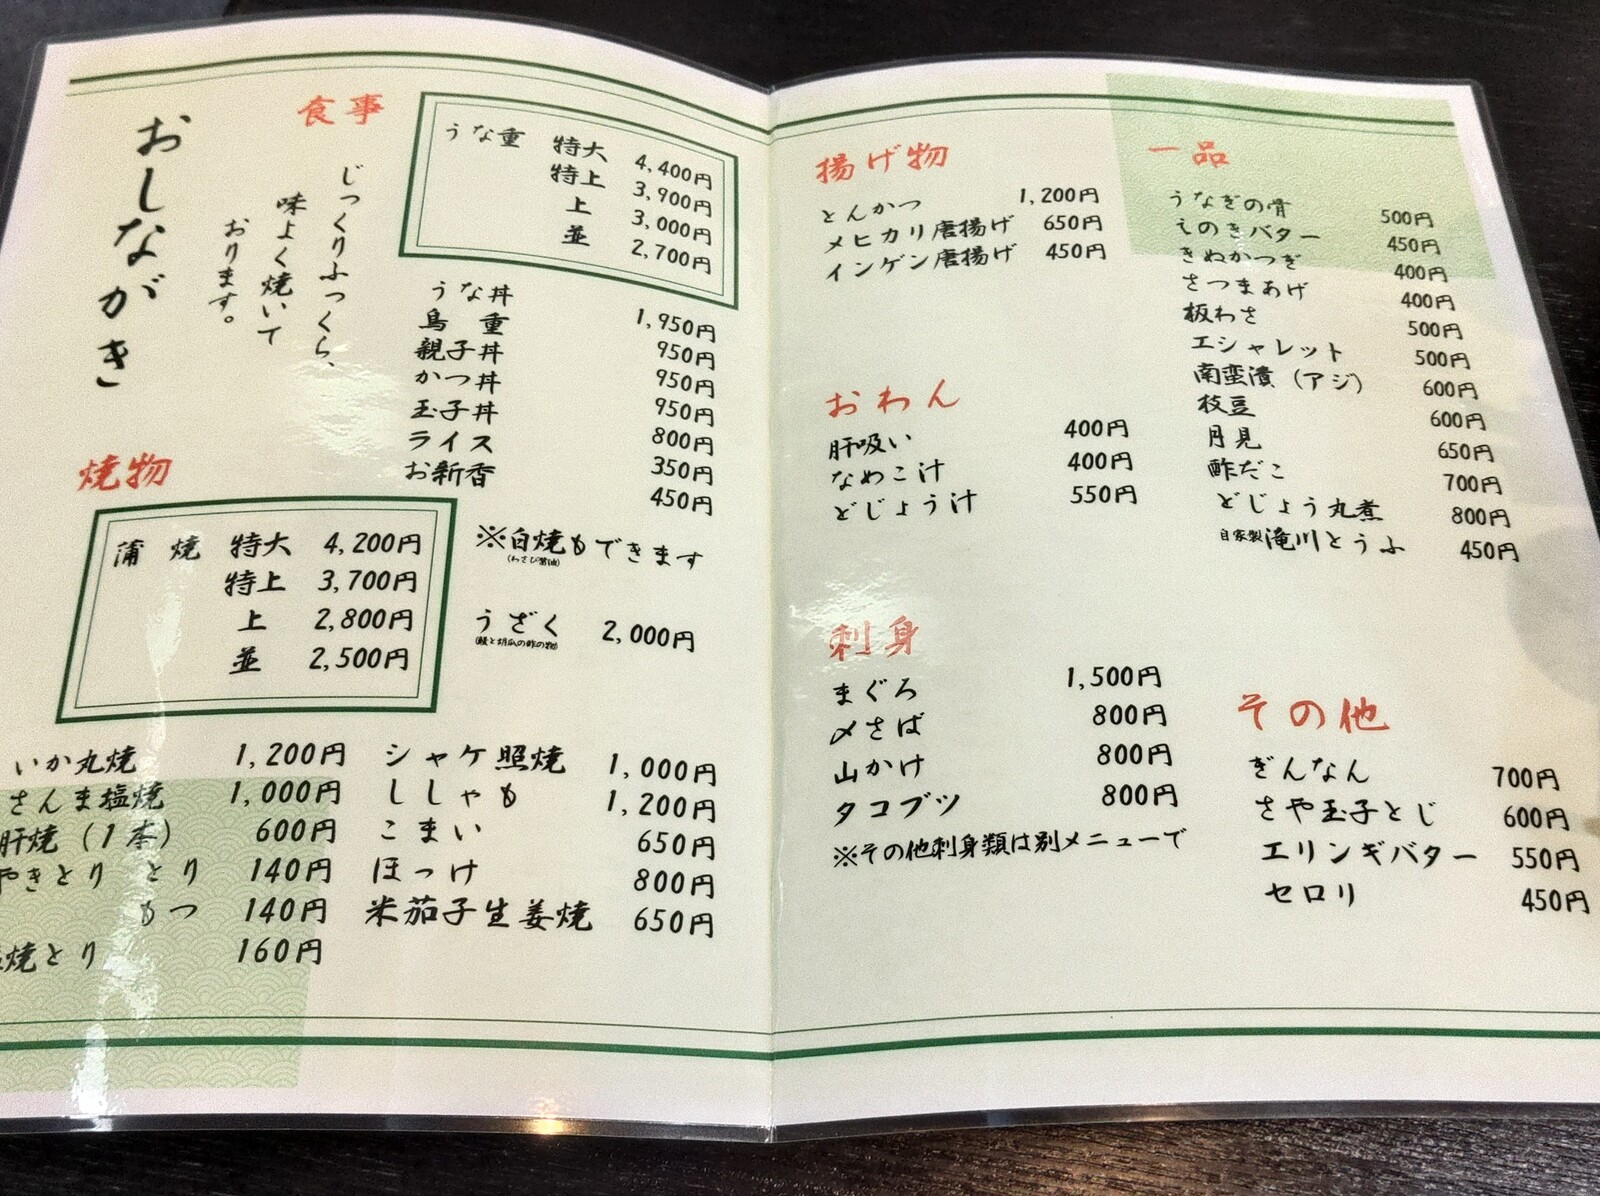 おしながき
食事
じっくりふっくら、
味よく焼いて
おります。
うな重 特大 4,400円
特上 3,900円
上 3,000円
並 2,700円
うな丼 1,950円
鳥重 950円
親子丼 950円
かつ丼 950円
玉子丼 800円
ライス 350円
お新香 450円
焼物
蒲焼 特大 4,200円
特上 3,700円
上 2,800円
並 2,500円
※白焼もできます
(わさび醤油)
うざく 2,000円
(鰻と胡瓜の酢の物)
いか丸焼 1,200円
さんま塩焼 1,000円
肝焼(1本) 600円
やきとり とり 140円
もつ 140円
焼とり 160円
シャケ照焼 1,000円
ししゃも 1,200円
こまい 650円
ほっけ 800円
米茄子生姜焼 650円
揚げ物
とんかつ 1,200円
メヒカリ唐揚げ 650円
インゲン唐揚げ 450円
おわん
肝吸い 400円
なめこ汁 400円
どじょう汁 550円
刺身
まぐろ 1,500円
〆さば 800円
山かけ 800円
タコブツ 800円
※その他刺身類は別メニューで
一品
うなぎの骨 500円
えのきバター 450円
きぬかつぎ 400円
さつまあげ 400円
板わさ 500円
エシャレット 500円
南蛮漬(アジ) 600円
枝豆 600円
月見 650円
酢だこ 700円
どじょう丸煮 800円
自家製滝川とうふ 450円
その他
ぎんなん 700円
さや玉子とじ 600円
エリンギバター 550円
セロリ 450円